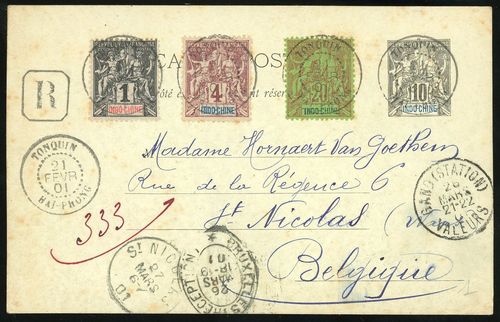 CARTE POSTALE
INDO-CHINE
1
INDO-CHINE
4
INDO-CHINE
20
INDO-CHINE
10
TONQUIN
R
TONQUIN
21
FEVR
01
HAI-PHONG
Madame Hornaert Van Goethem
Rue de la Régence 6
St Nicolas
Belgique
333
GAND (STATION)
26
MARS
21-22
VALEURS
ST NICOLAS
27
MARS
01
BRUXELLES
RECEPTION
26
MARS
01